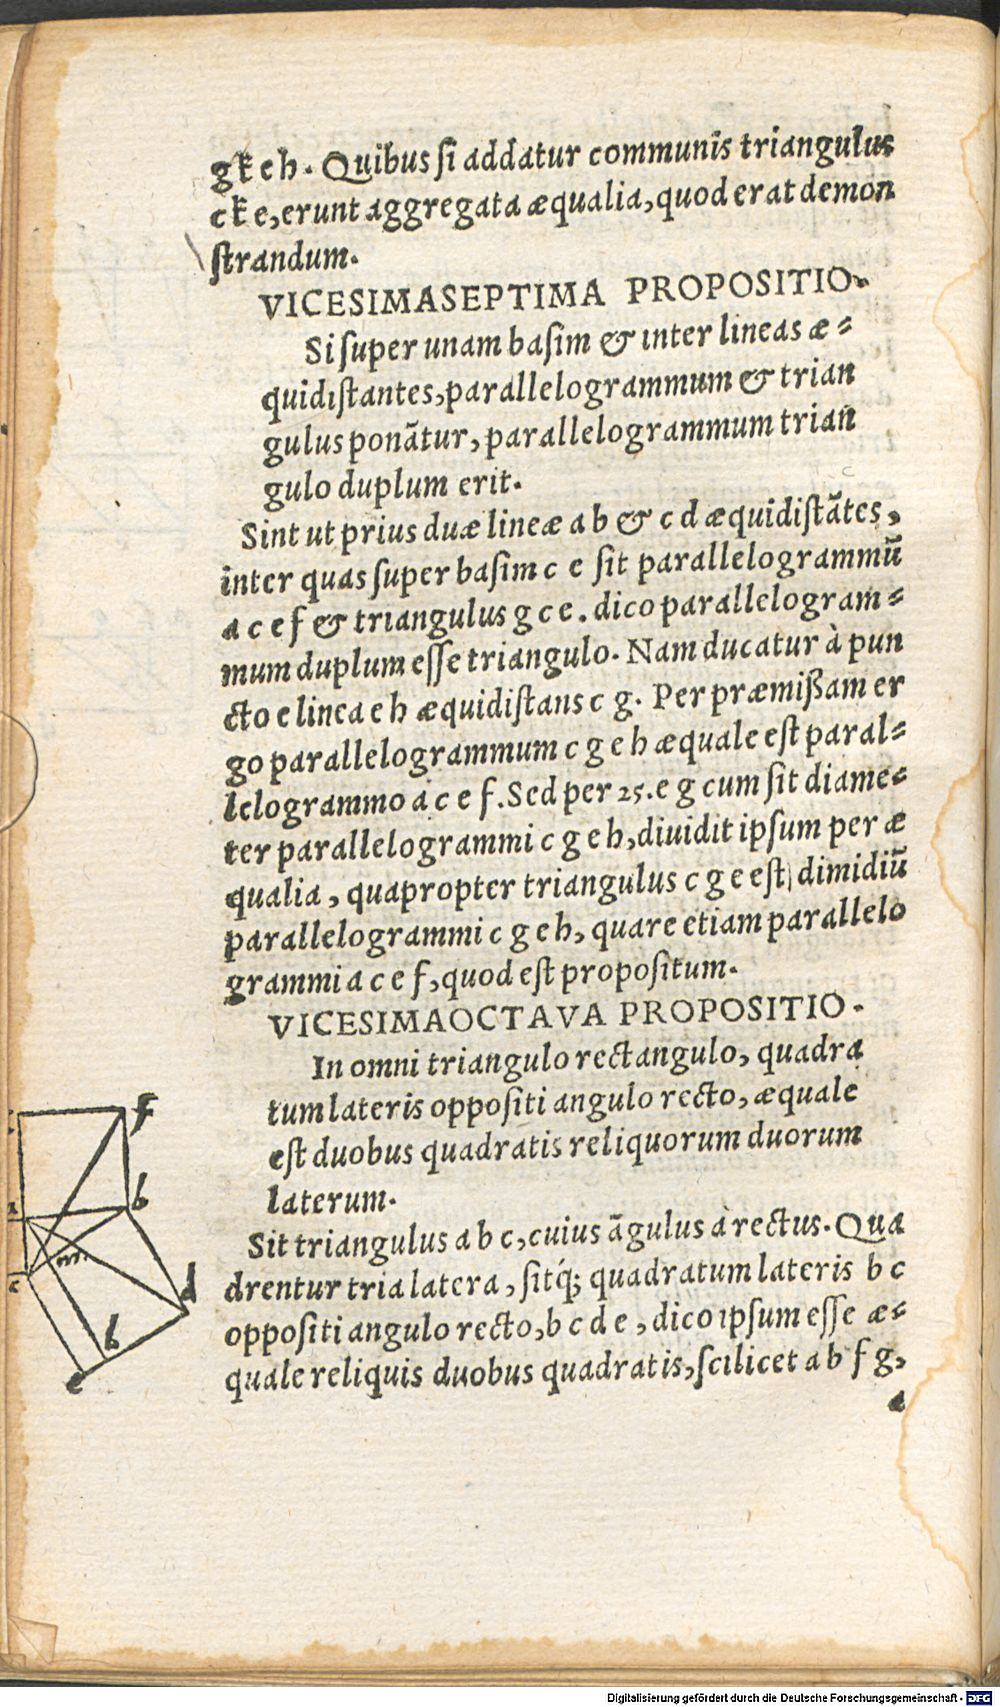 gk e h. Quibus si addatur communis triangulus
ck e, erunt aggregata æqualia, quod erat demon
strandum.
VICESIMASEPTIMA PROPOSITIO.
Si super unam basim & inter lineas æ-
quidistantes, parallelogrammum & trian
gulus ponãtur, parallelogrammum trian
gulo duplum erit.
Sint ut prius duæ lineæ a b & c d æquidistãtes,
inter quas super basim c e sit parallelogrammũ
a c e f & triangulus g c e. dico parallelogram-
mum duplum esse triangulo. Nam ducatur à pun
cto e linea e h æquidistans c g. Per præmißam er
go parallelogrammum c g e h æquale est paral-
lelogrammo a c e f. Sed per 25. e g cum sit diame-
ter parallelogrammi c g e h, diuidit ipsum per æ
qualia, quapropter triangulus c g e est dimidiũ
parallelogrammi c g e h, quare etiam parallelo
grammi a c e f, quod est propositum.
VICESIMAOCTAVA PROPOSITIO.
In omni triangulo rectangulo, quadra
tum lateris oppositi angulo recto, æquale
est duobus quadratis reliquorum duorum
laterum.
Sit triangulus a b c, cuius ãgulus à rectus. Qua
drentur tria latera, sitq́; quadratum lateris b c
oppositi angulo recto, b c d e, dico ipsum esse æ-
quale reliquis duobus quadratis, scilicet a b f g,
a
f
a
b
m
c
d
h
e
Digitalisierung gefördert durch die Deutsche Forschungsgemeinschaft - DFG